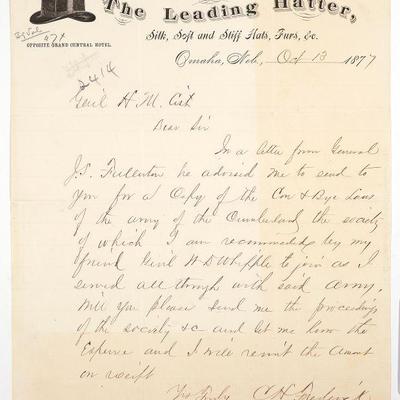 The Leading Hatter,
Silk, Soft and Stiff Hats, Furs, &c.
OPPOSITE GRAND CENTRAL HOTEL.
Omaha, Neb, Oct 13 1877
2414
Genl H. M. Cist
Dear Sir
In a letter from General
J.S. Fullerton he advised me to send to
you for a Copy of the Con & Bye Laws
of the army of the Cumberland, the society
of which I am recommended by my
friend Genl W D Whipple to join as I
served all through with said army.
Will you please send me the proceedings
of the society &c and let me know the
Expense and I will remit the amount
on receipt
Yrs Truly C. H.